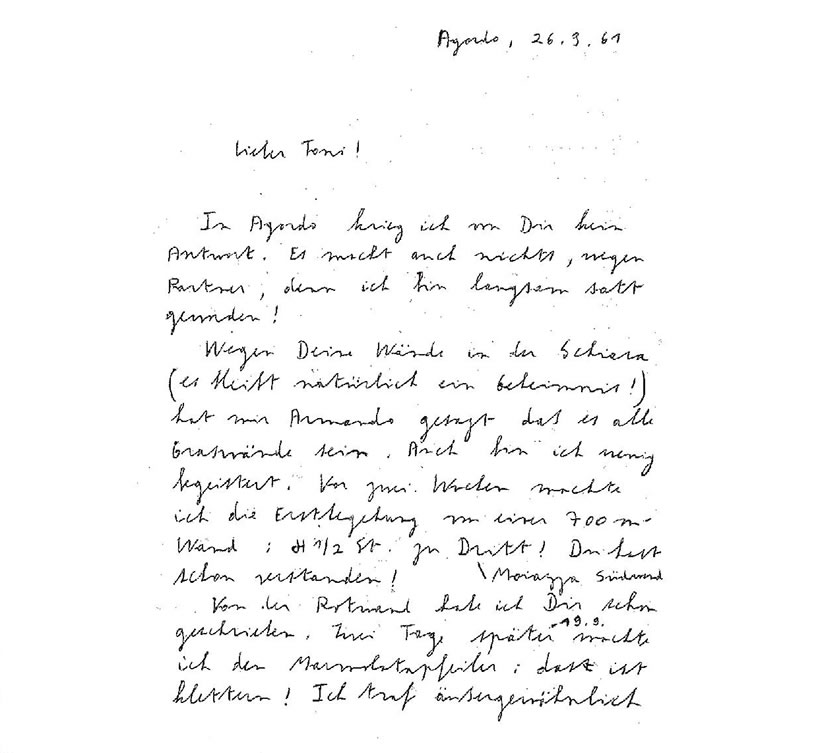 Agordo, 26.9.61
Lieber Toni!
In Agordo krieg ich von Dir kein
Antwort. Es macht auch nichts, wegen
Partner, denn ich bin langsam satt
geworden!
Wegen Deine Wände in der Schiara
(es bleibt natürlich ein Geheimnis!)
hat mir Armando gesagt daß es alle
Graswände sein. Auch bin ich wenig
begeistert. Vor zwei Wochen machte
ich die Erstbegehung von einer 700 m-
Wand : 1/2 St. zu Dritt! Du hast
schon verstanden! \ Moiazza Südwand
Von der Rotwand habe ich Dir schon
geschrieben. Zwei Tage später machte
19.9.
ich den Marmolatapfeiler : das ist
klettern! Ich traf außergewöhnlich